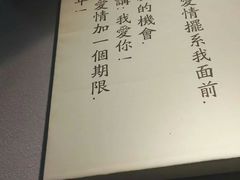 愛情擺系我面前．
的機會．
講：我愛你一
愛情加一個期限．
年一